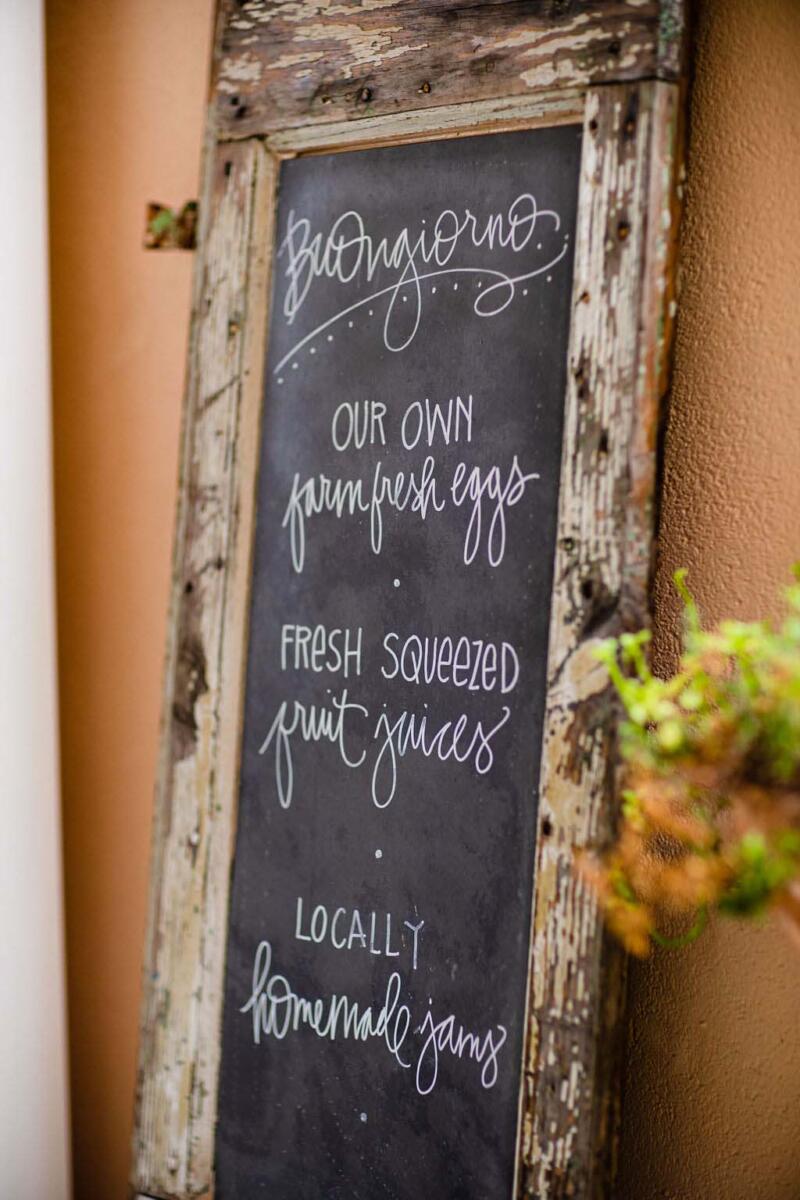 Buongiorno.
OUR OWN
farm fresh eggs
FRESH SQUEEZED
fruit juices
LOCALLY
homemade jams